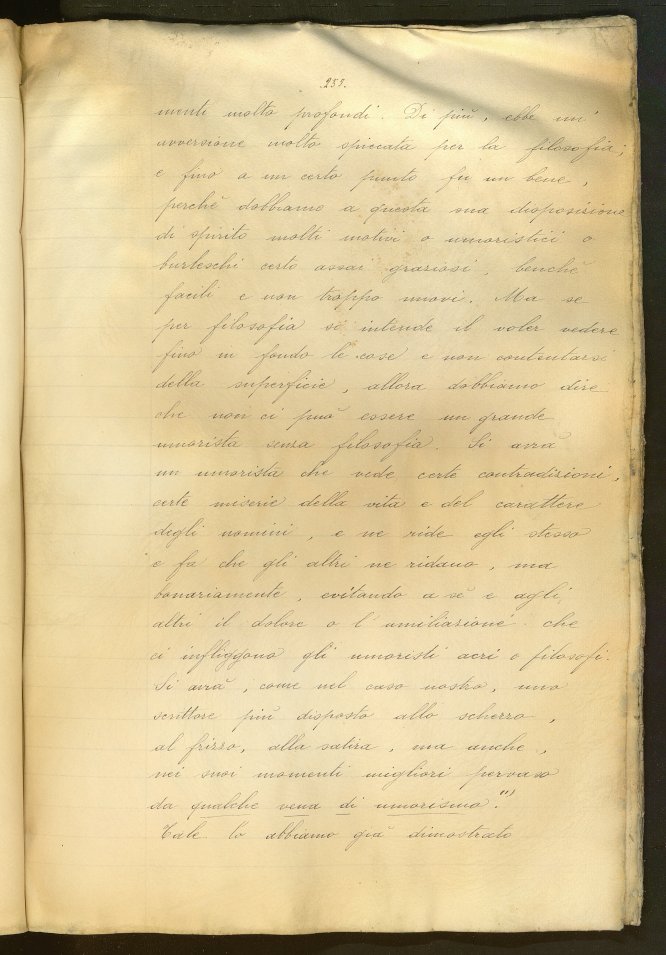 .235.
menti molto profondi. Di più, ebbe un'
avversione molto spiccata per la filosofia;
e fino a un certo punto fu un bene,
perchè dobbiamo a questa sua disposizione
di spirito molti motivi o umoristici o
burleschi certo assai graziosi, benchè
facili e non troppo nuovi. Ma se
per filosofia si intende il voler vedere
fino in fondo le cose e non contentarsi
della superficie, allora dobbiamo dire
che non ci può essere un grande
umorista senza filosofia. Si avrà
un umorista che vede certe contradizioni,
certe miserie della vita e del carattere
degli uomini, e ne ride egli stesso
e fa che gli altri ne ridano, ma
bonariamente, evitando a sè e agli
altri il dolore o l'umiliazione che
ci infliggono gli umoristi acri o filosofi.
Si avrà, come nel caso nostro, uno
scrittore più disposto allo scherzo,
al frizzo, alla satira, ma anche,
nei suoi momenti migliori pervaso
da qualche vena di umorismo."
Tale lo abbiamo già dimostrato